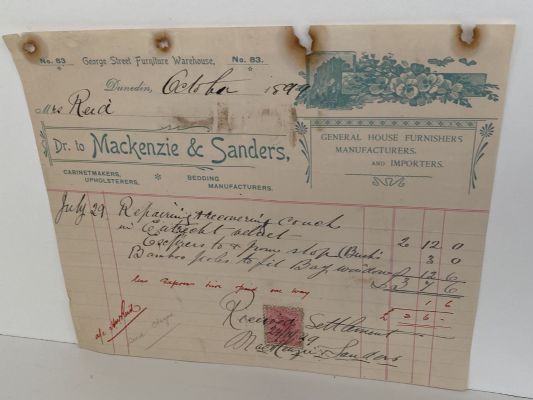 No. 83 George Street Furniture Warehouse, No. 83.
Dunedin, October 1899
Mrs Reid
Dr. to Mackenzie & Sanders,
GENERAL HOUSE FURNISHERS
MANUFACTURERS,
AND IMPORTERS.
CABINETMAKERS,
UPHOLSTERERS,
BEDDING
MANUFACTURERS.
July 29 Repairing & recovering couch
in Utrecht velvet 2 12 0
to & from shop (Bush) 3 0
Bamboo poles to fit Bay window 12 6
£ 3 7 6
less one way 1 6
£ 3 6 -
Received Settlement
Mackenzie & Sanders